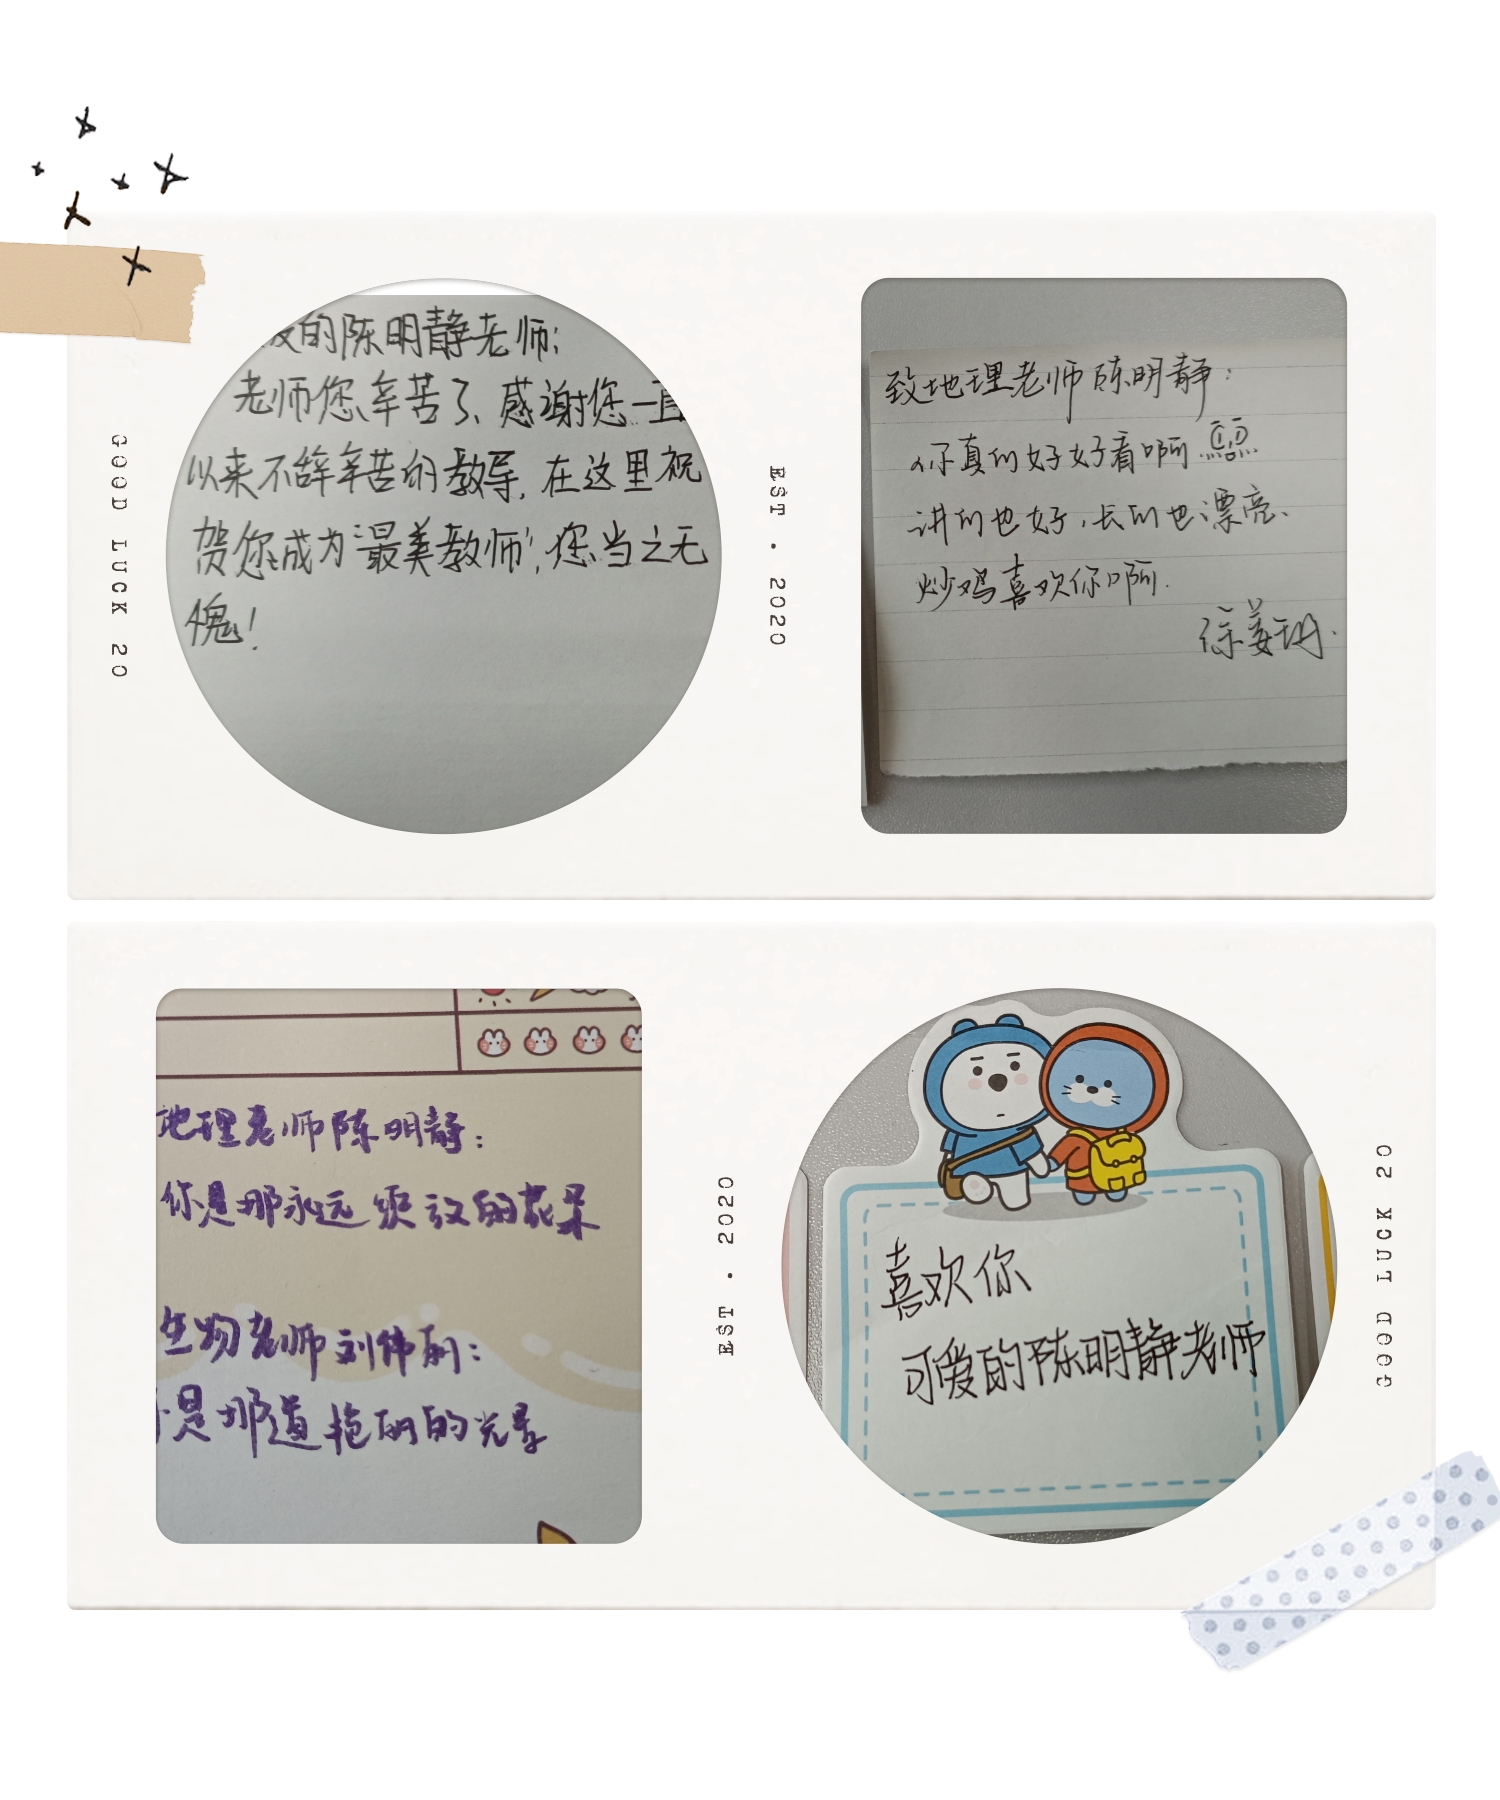 的陈明静老师：
老师您辛苦了、感谢您一直
以来不辞辛苦的教导，在这里祝
贺您成为"最美教师"，您当之无
愧！
致地理老师陈明静：
你真的好好看啊
讲的也好，长的也漂亮、
炒鸡喜欢你啊.
GOOD LUCK 20
EST · 2020
地理老师陈明静：
你是那永远绽放的花朵
生物老师刘伟丽：
是那道艳丽的光景
喜欢你
可爱的陈明静老师
EST · 2020
GOOD LUCK 20